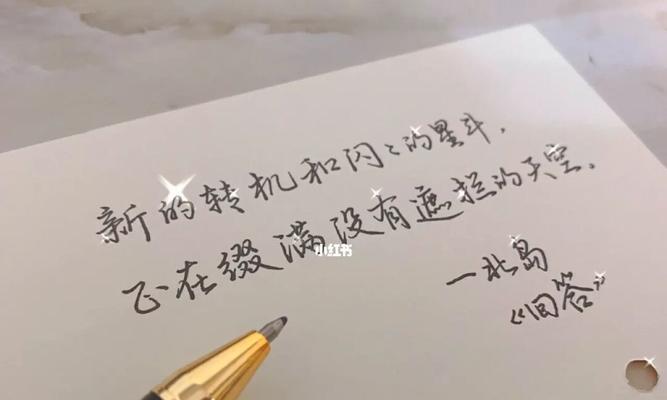 新的转机和闪々的星斗，
正在缀满没有遮拦的天空。
小红书
—北岛
《回答》